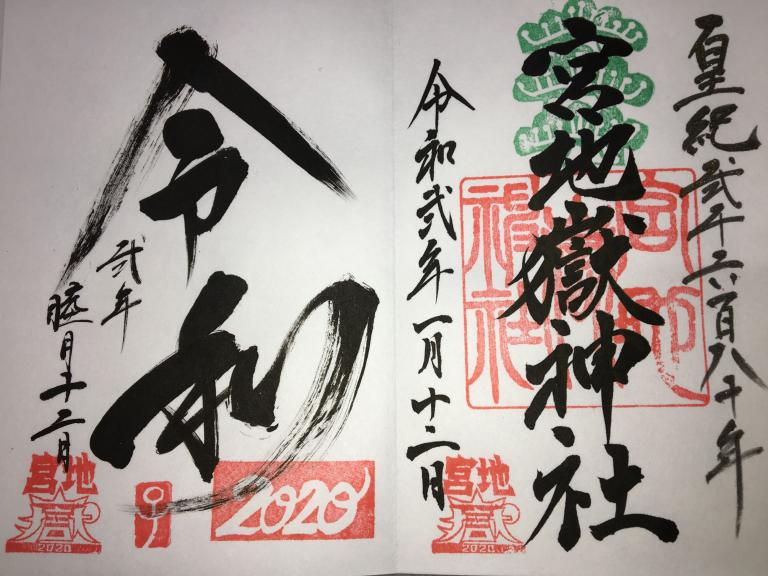 皇紀弐千六百八十年
宮地嶽神社
令和弐年一月十二日
宮地
嶽
2020
令和
弐年
睦月十二日
2020
子
宮地
嶽
2020